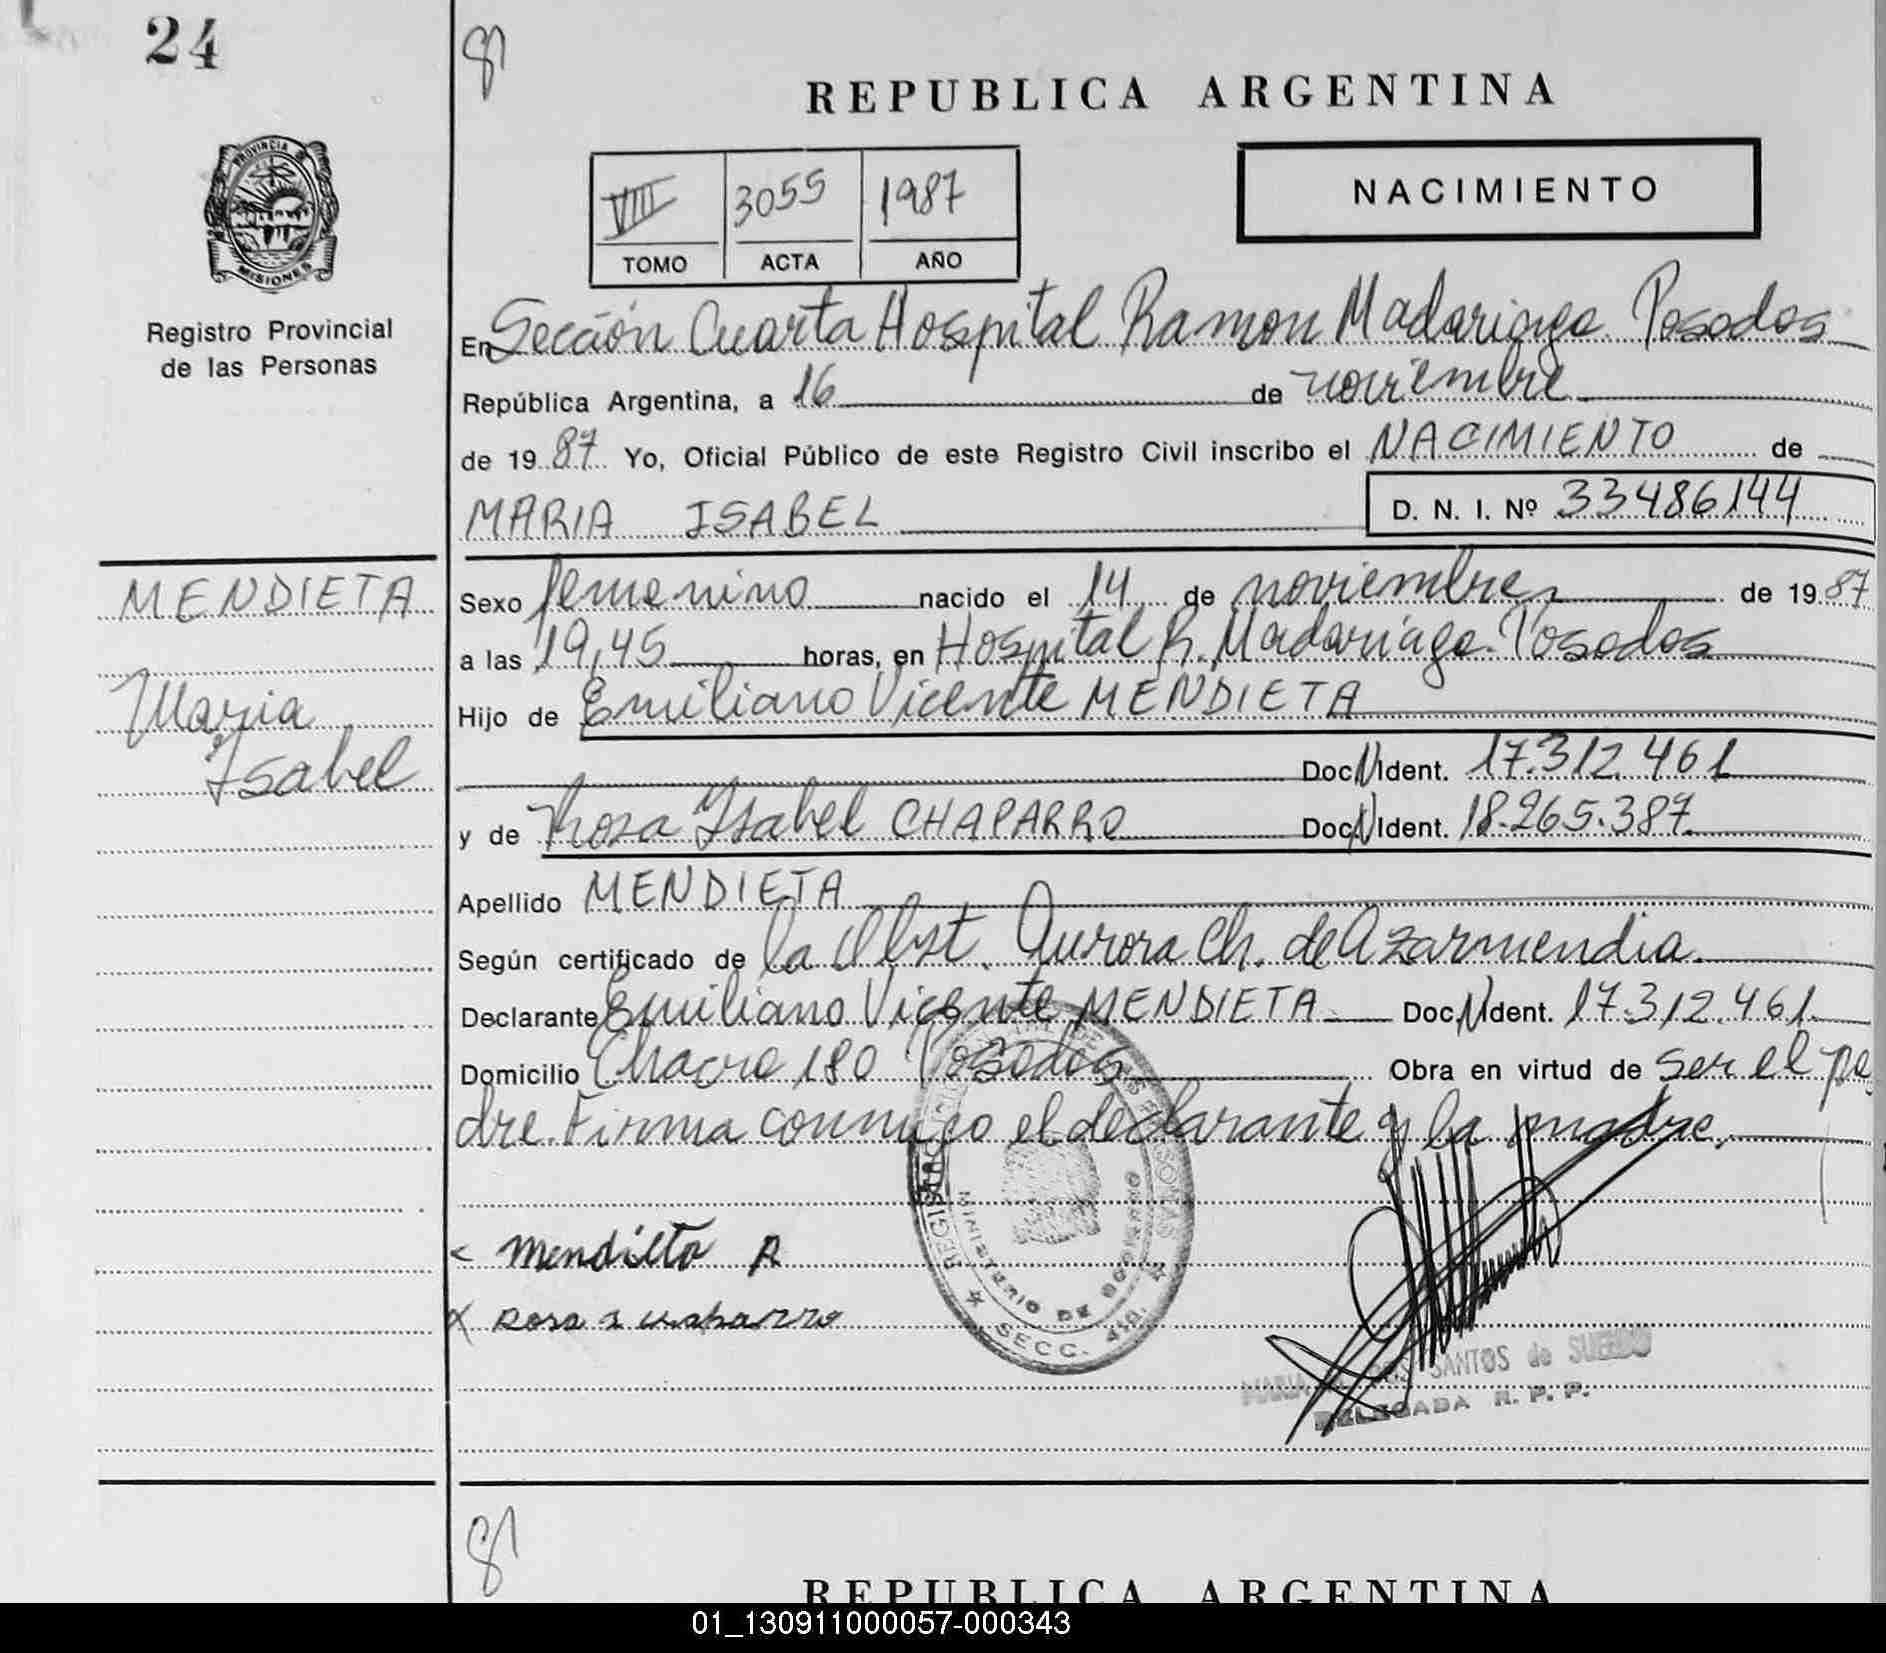 24
REPUBLICA ARGENTINA
VIII 3055 1987
TOMO ACTA AÑO
NACIMIENTO
PROVINCIA DE
MISIONES
Registro Provincial
de las Personas
En Sección Cuarta Hospital Ramon Madariaga. Posadas
República Argentina, a 16 de noviembre
de 1987 Yo, Oficial Público de este Registro Civil inscribo el NACIMIENTO de
MARIA ISABEL D. N. I. Nº 33486144
MENDIETA
Maria
Isabel
Sexo femenino nacido el 14 de noviembre de 1987
a las 19,45 horas, en Hospital R. Madariaga. Posadas
Hijo de Emiliano Vicente MENDIETA
Doc N Ident. 17.312.461
y de Rosa Isabel CHAPARRO Doc N Ident. 18.265.387
Apellido MENDIETA
Según certificado de la Obst. Aurora Ch. de Azarmendia.
Declarante Emiliano Vicente MENDIETA Doc N Ident. 17.312.461
Domicilio Chacra 180 Posadas Obra en virtud de ser el pa
dre. Firma conmigo el declarante y la madre.
REGISTRO DE LAS PERSONAS
MINISTERIO DE GOBIERNO
SECC. 4ta.
Mendieta
MARIA SANTOS de
DELEGADA R. P. P.
REPUBLICA ARGENTINA
01_130911000057-000343